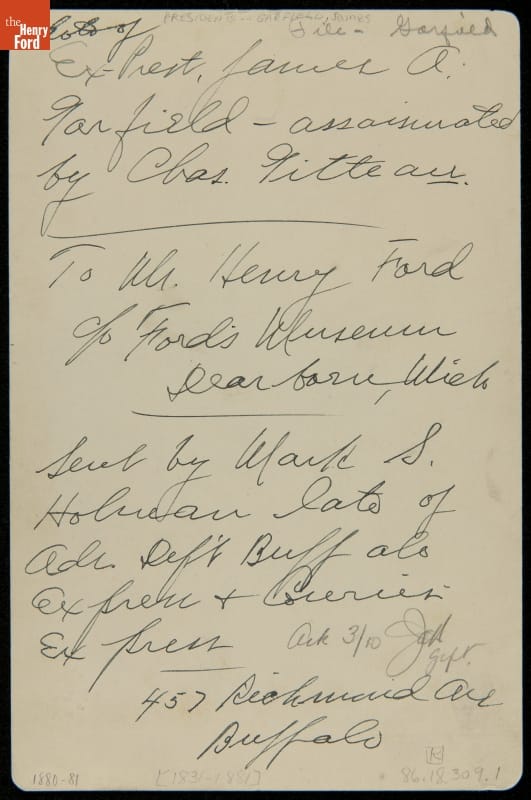 the
Henry
Ford
PRESIDENTS -- GARFIELD, JAMES
Photo of File - Garfield
Ex-Prest. James A.
Garfield - assassinated
by Chas. Gitteau.
To Mr. Henry Ford
c/o Ford's Museum
Dearborn, Mich
Sent by Mark S.
Holman late of
Adv. Dept Buffalo
Express & Courier
Express Ack 3/10
gift.
457 Richmond Ave
Buffalo
1880-81 [1831-1881] 86.18.309.1